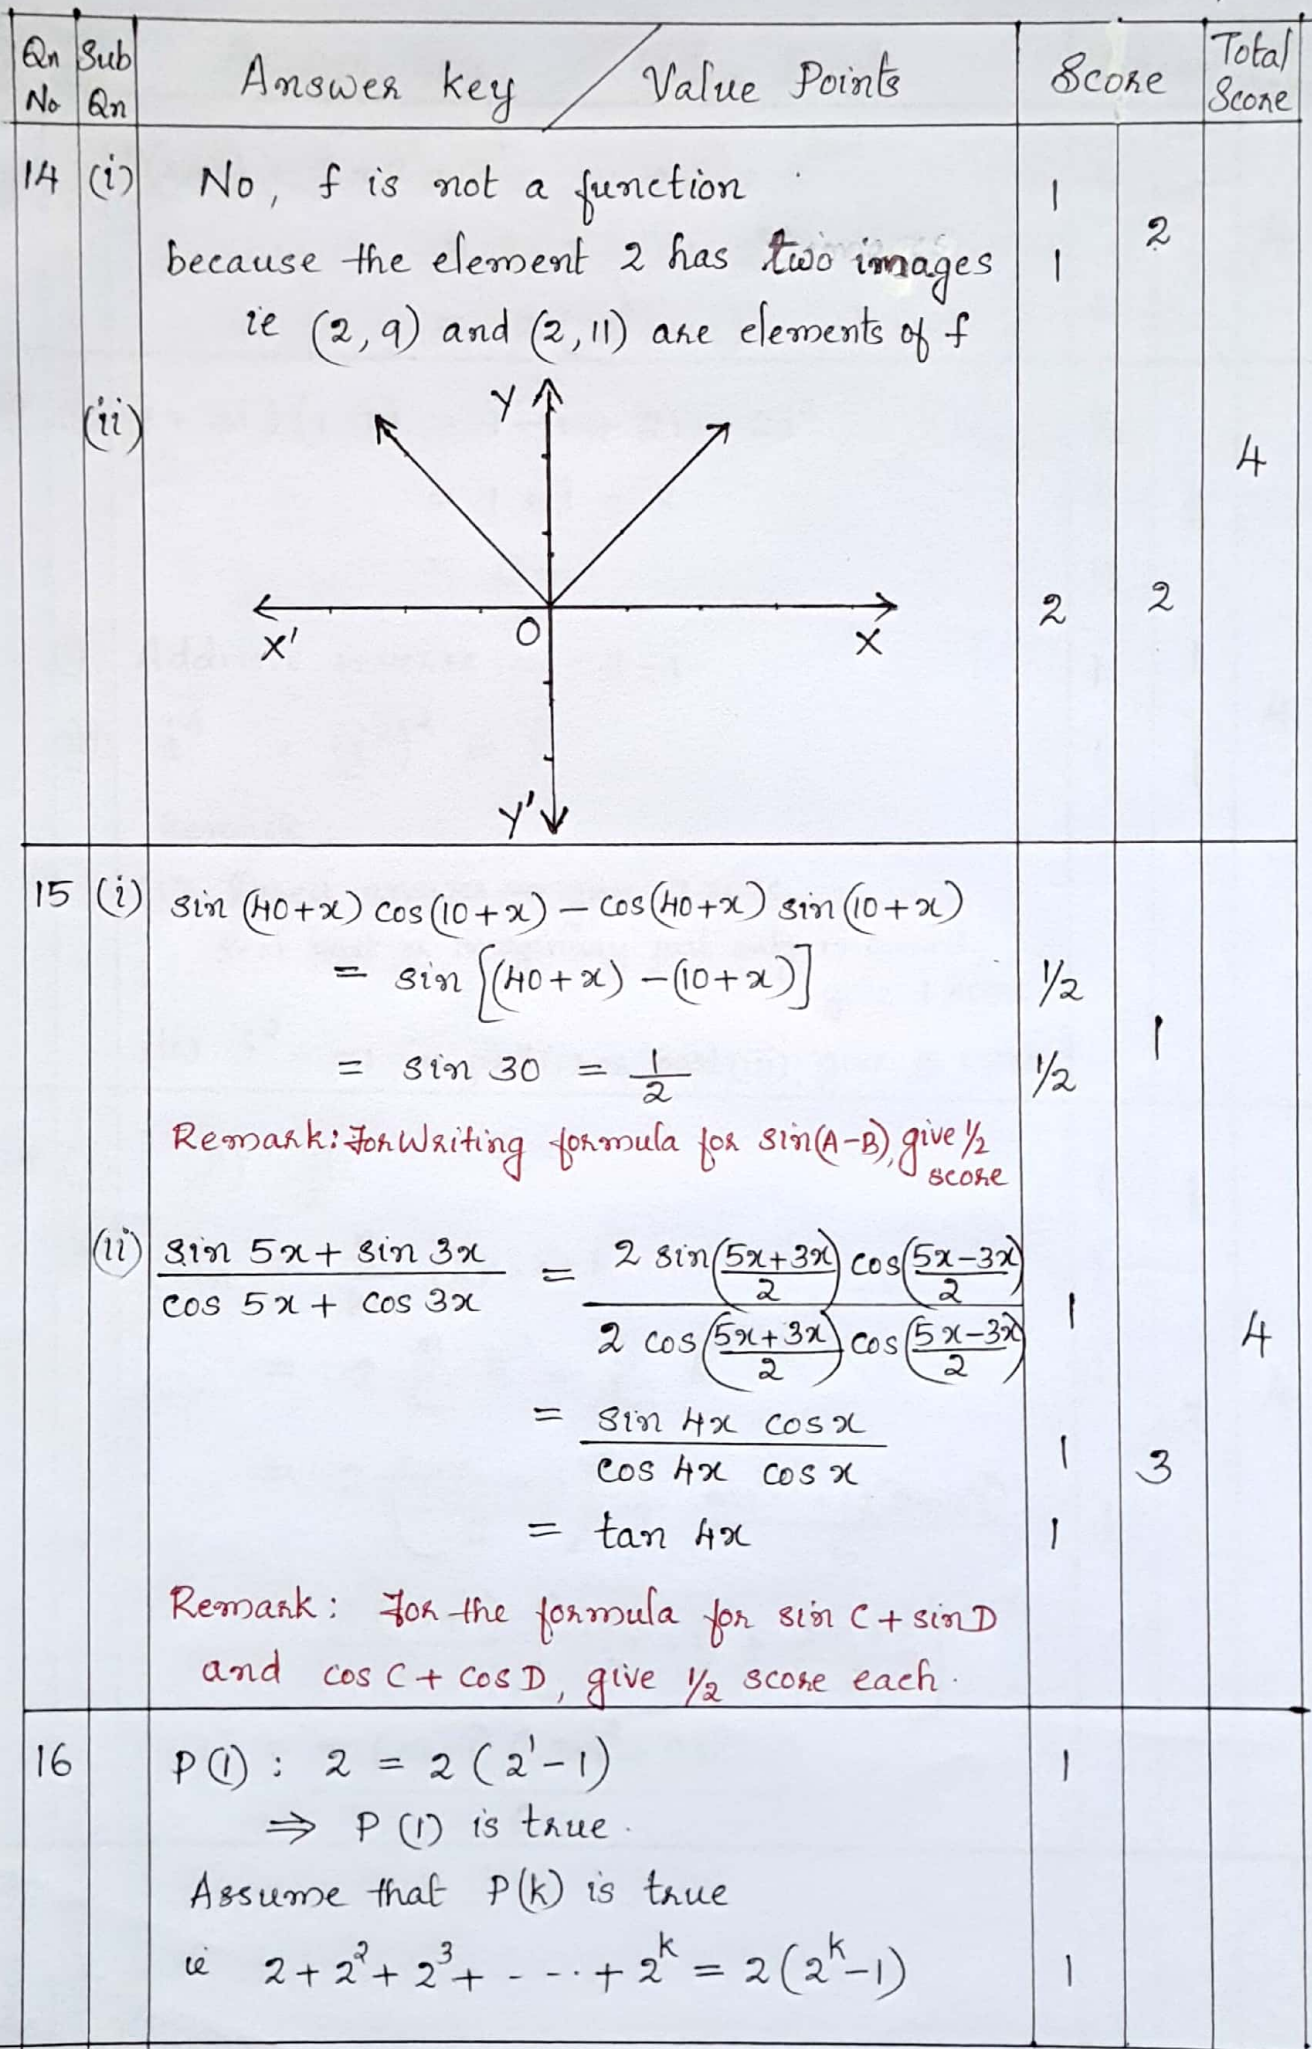 Qn No Sub Qn Answer key / Value Points Score Total Score
14 (i) No, f is not a function 1
because the element 2 has two images 1 2
ie (2, 9) and (2, 11) are elements of f
(ii) Y
4
X' O X 2 2
Y'
15 (i) sin (40+x) cos (10+x) – cos (40+x) sin (10+x)
= sin [(40+x) – (10+x)] 1/2
= sin 30 = 1/2 1/2 1
Remark: For Writing formula for sin(A–B), give 1/2 score
(ii) (sin 5x + sin 3x)/(cos 5x + cos 3x) = (2 sin((5x+3x)/2) cos((5x–3x)/2))/(2 cos((5x+3x)/2) cos((5x–3x)/2)) 1 4
= (sin 4x cos x)/(cos 4x cos x) 1 3
= tan 4x 1
Remark: For the formula for sin C + sin D
and cos C + cos D, give 1/2 score each.
16 P(1) : 2 = 2 (2¹ – 1) 1
⇒ P (1) is true.
Assume that P(k) is true
ie 2 + 2² + 2³ + - - -.. + 2ᵏ = 2 (2ᵏ – 1) 1